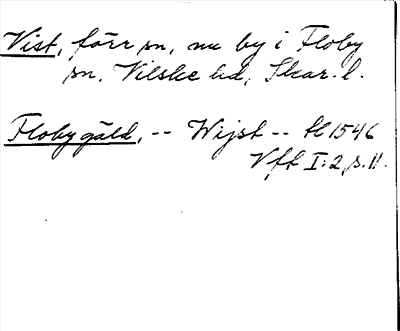 Vist, förr sn, nu by i Floby
sn, Vilske hd, Skar. l.
Floby gäld, -- Wijst -- 1546
Vft I:2, s. 11.